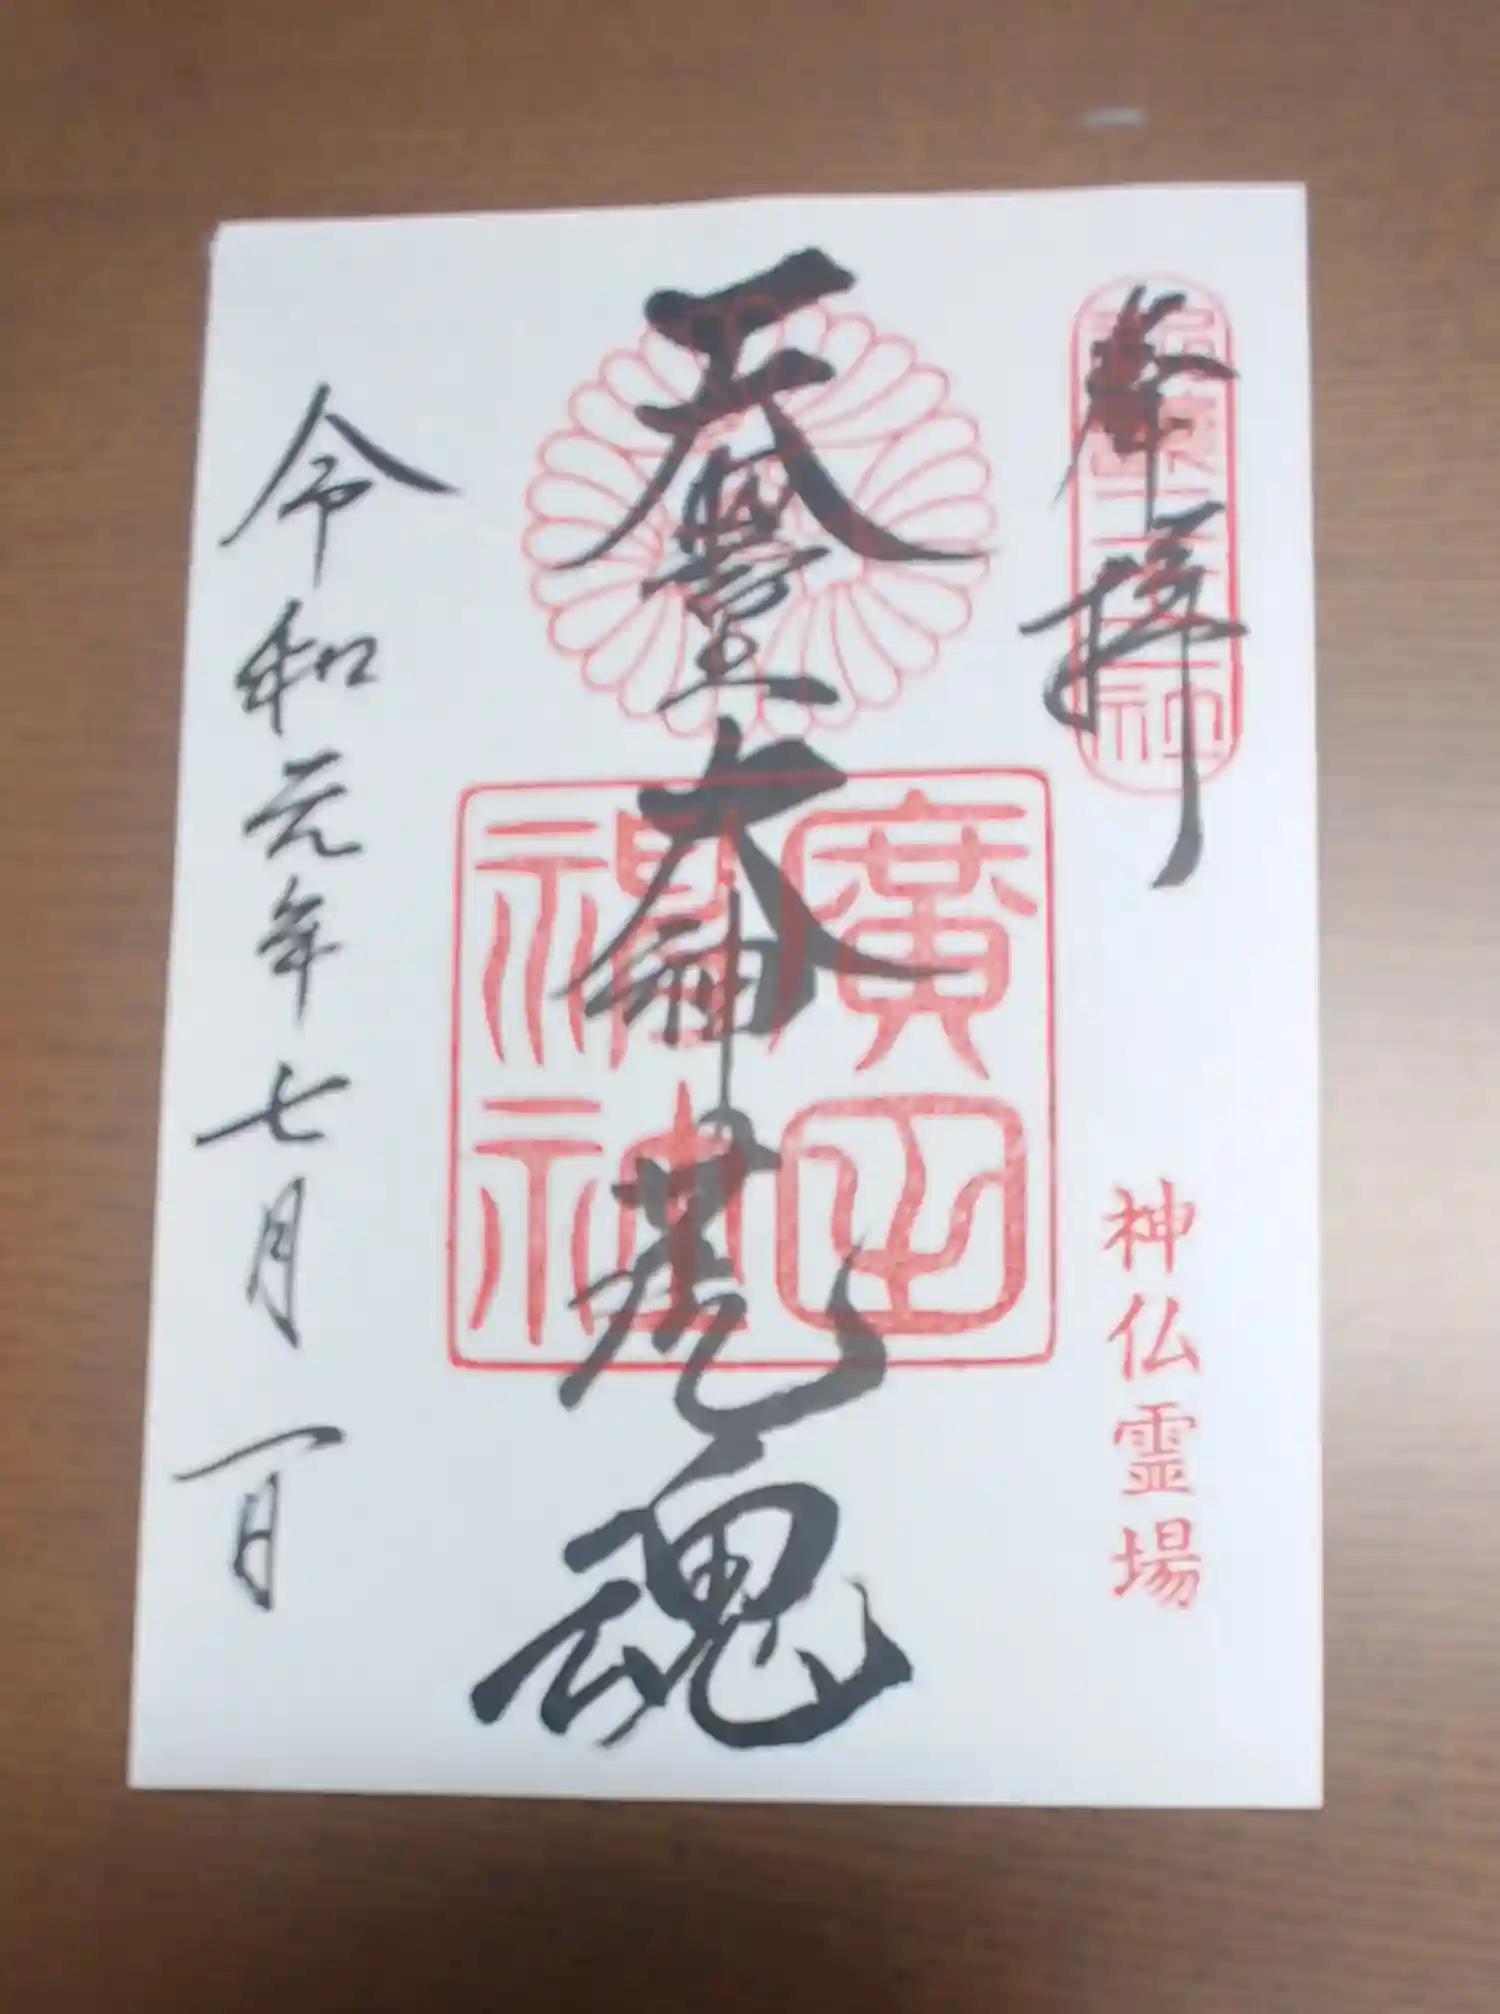 奉拝
神仏霊場
天曌大神之荒魂
廣田
神社
令和元年七月一日